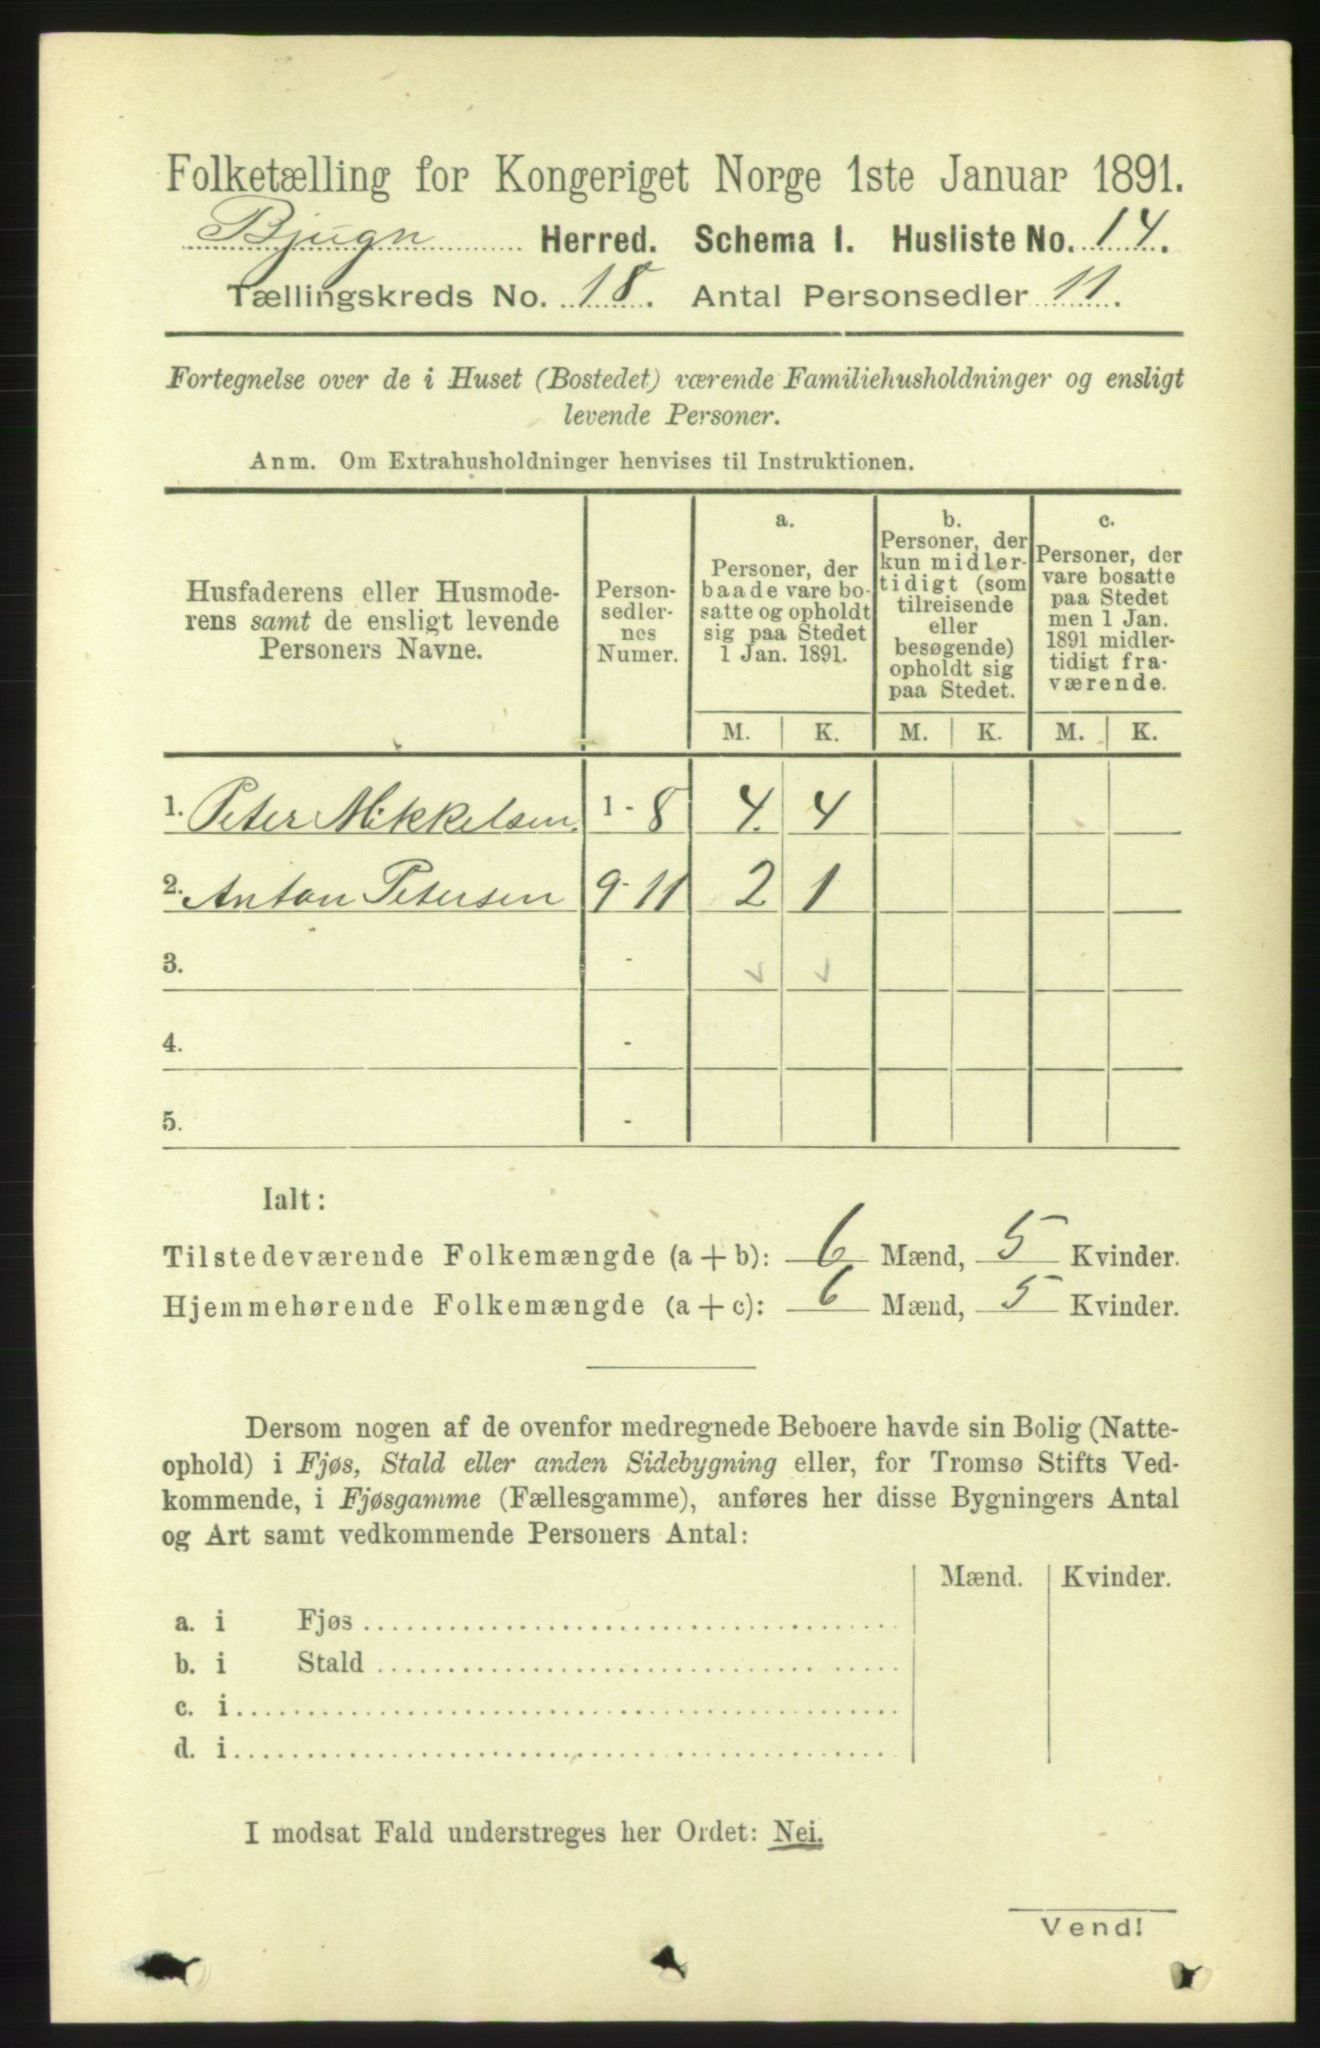 Folketælling for Kongeriget Norge 1ste Januar 1891.
Bjugn Herred. Schema 1. Husliste No. 14.
Tællingskreds No. 18. Antal Personsedler 11.
Fortegnelse over de i Huset (Bostedet) værende Familiehusholdninger og ensligt
levende Personer.
Anm. Om Extrahusholdninger henvises til Instruktionen.
Husfaderens eller Husmode-
rens samt de ensligt levende
Personers Navne.
Person-
sedler-
nes
Numer.
a.
Personer, der
baade vare bo-
satte og opholdt
sig paa Stedet
1 Jan. 1891.
b.
Personer, der
kun midler-
tidigt (som
tilreisende
eller
besøgende)
opholdt sig
paa Stedet.
c.
Personer, der
vare bosatte
paa Stedet
men 1 Jan.
1891 midler-
tidigt fra-
værende.
M. K. M. K. M. K.
1. Peter Mikkelsen. 1 - 8 4. 4
2. Anton Petersen 9 - 11 2 1
3. -
4. -
5. -
Ialt:
Tilstedeværende Folkemængde (a + b): 6 Mænd, 5 Kvinder.
Hjemmehørende Folkemængde (a + c): 6 Mænd, 5 Kvinder.
Dersom nogen af de ovenfor medregnede Beboere havde sin Bolig (Natte-
ophold) i Fjøs, Stald eller anden Sidebygning eller, for Tromsø Stifts Ved-
kommende, i Fjøsgamme (Fællesgamme), anføres her disse Bygningers Antal
og Art samt vedkommende Personers Antal:
Mænd. Kvinder.
a. i Fjøs
b. i Stald
c. i
d. i
I modsat Fald understreges her Ordet: Nei.
Vend!